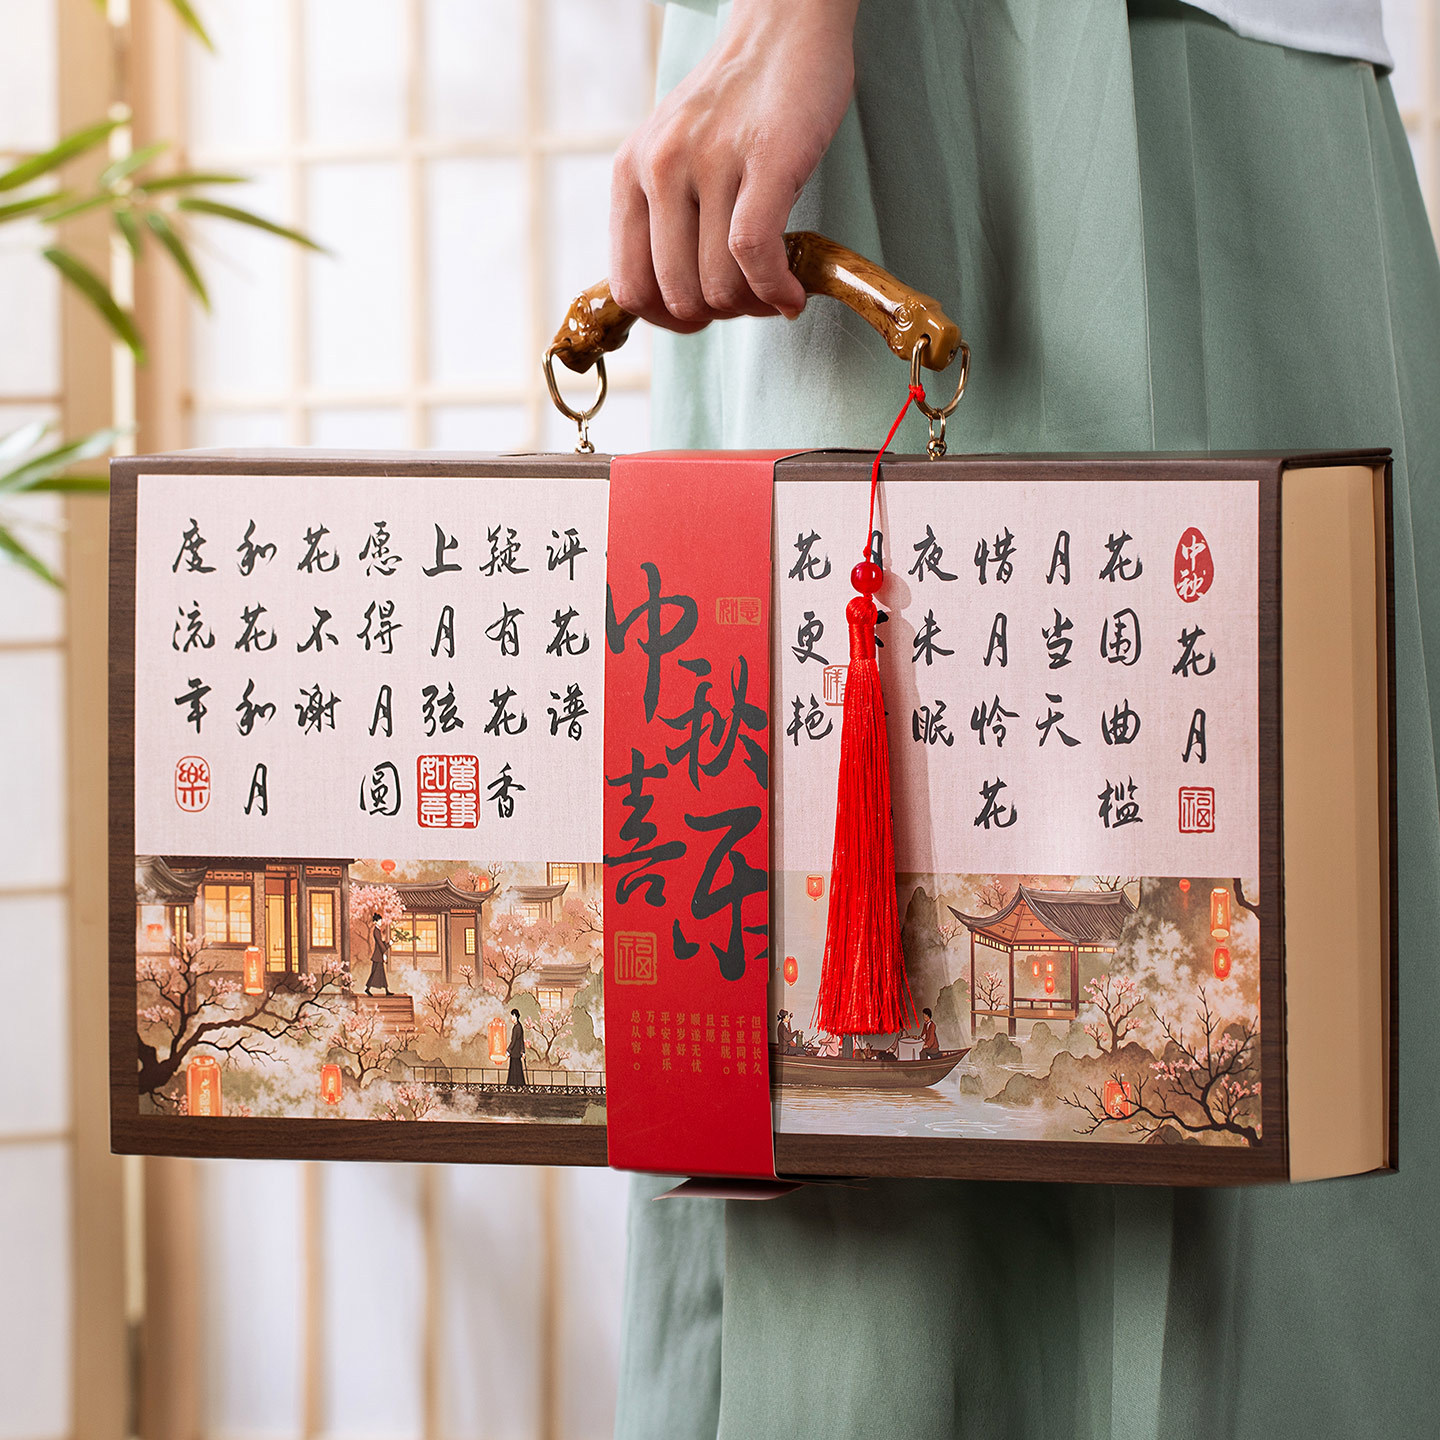 中秋
花月
福
花围曲槛
月当天
惜月怜花
夜未眠
月
花更艳
如意
中秋
喜乐
福
但愿长久
千里同赏
玉盘胧。
且愿
顺遂无忧
岁岁好
平安喜乐
万事
总从容。
评花谱
疑有花香
上月弦
萬事如意
愿得月圆
花不谢
和花和月
度流年
樂